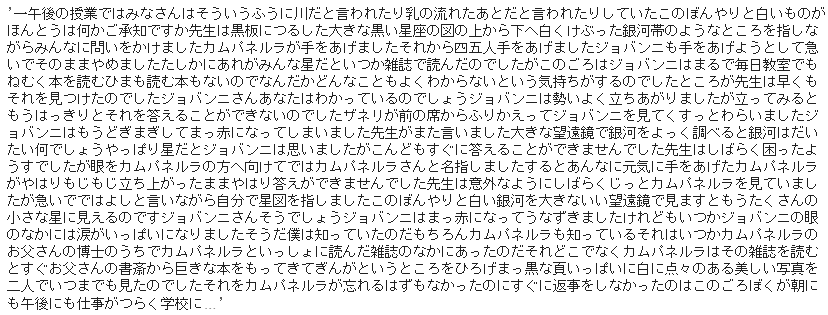 '一午後の授業ではみなさんはそういうふうに川だと言われたり乳の流れたあとだと言われたりしていたこのぼんやりと白いものが
ほんとうは何かご承知ですか先生は黒板につるした大きな黒い星座の図の上から下へ白くけぶった銀河帯のようなところを指しな
がらみんなに問いをかけましたカムパネルラが手をあげましたそれから四五人手をあげましたジョバンニも手をあげようとして急
いでそのままやめましたたしかにあれがみんな星だといつか雑誌で読んだのでしたがこのごろはジョバンニはまるで毎日教室でも
ねむく本を読むひまも読む本もないのでなんだかどんなこともよくわからないという気持ちがするのでしたところが先生は早くも
それを見つけたのでしたジョバンニさんあなたはわかっているのでしょうジョバンニは勢いよく立ちあがりましたが立ってみると
もうはっきりとそれを答えることができないのでしたザネリが前の席からふりかえってジョバンニを見てくすっとわらいましたジ
ョバンニはもうどぎまぎしてまっ赤になってしまいました先生がまた言いました大きな望遠鏡で銀河をよっく調べると銀河はだい
たい何でしょうやっぱり星だとジョバンニは思いましたがこんどもすぐに答えることができませんでした先生はしばらく困ったよ
うすでしたが眼をカムパネルラの方へ向けてではカムパネルラさんと名指しましたするとあんなに元気に手をあげたカムパネルラ
がやはりもじもじ立ち上がったままやはり答えができませんでした先生は意外なようにしばらくじっとカムパネルラを見ていまし
たが急いでではよしと言いながら自分で星図を指しましたこのぼんやりと白い銀河を大きないい望遠鏡で見ますともうたくさんの
小さな星に見えるのですジョバンニさんそうでしょうジョバンニはまっ赤になってうなずきましたけれどもいつかジョバンニの眼
のなかには涙がいっぱいになりましたそうだ僕は知っていたのだもちろんカムパネルラも知っているそれはいつかカムパネルラの
お父さんの博士のうちでカムパネルラといっしょに読んだ雑誌のなかにあったのだそれどこでなくカムパネルラはその雑誌を読む
とすぐお父さんの書斎から巨きな本をもってきてぎんがというところをひろげまっ黒な頁いっぱいに白に点々のある美しい写真を
二人でいつまでも見たのでしたそれをカムパネルラが忘れるはずもなかったのにすぐに返事をしなかったのはこのごろぼくが朝に
も午後にも仕事がつらく学校に...'